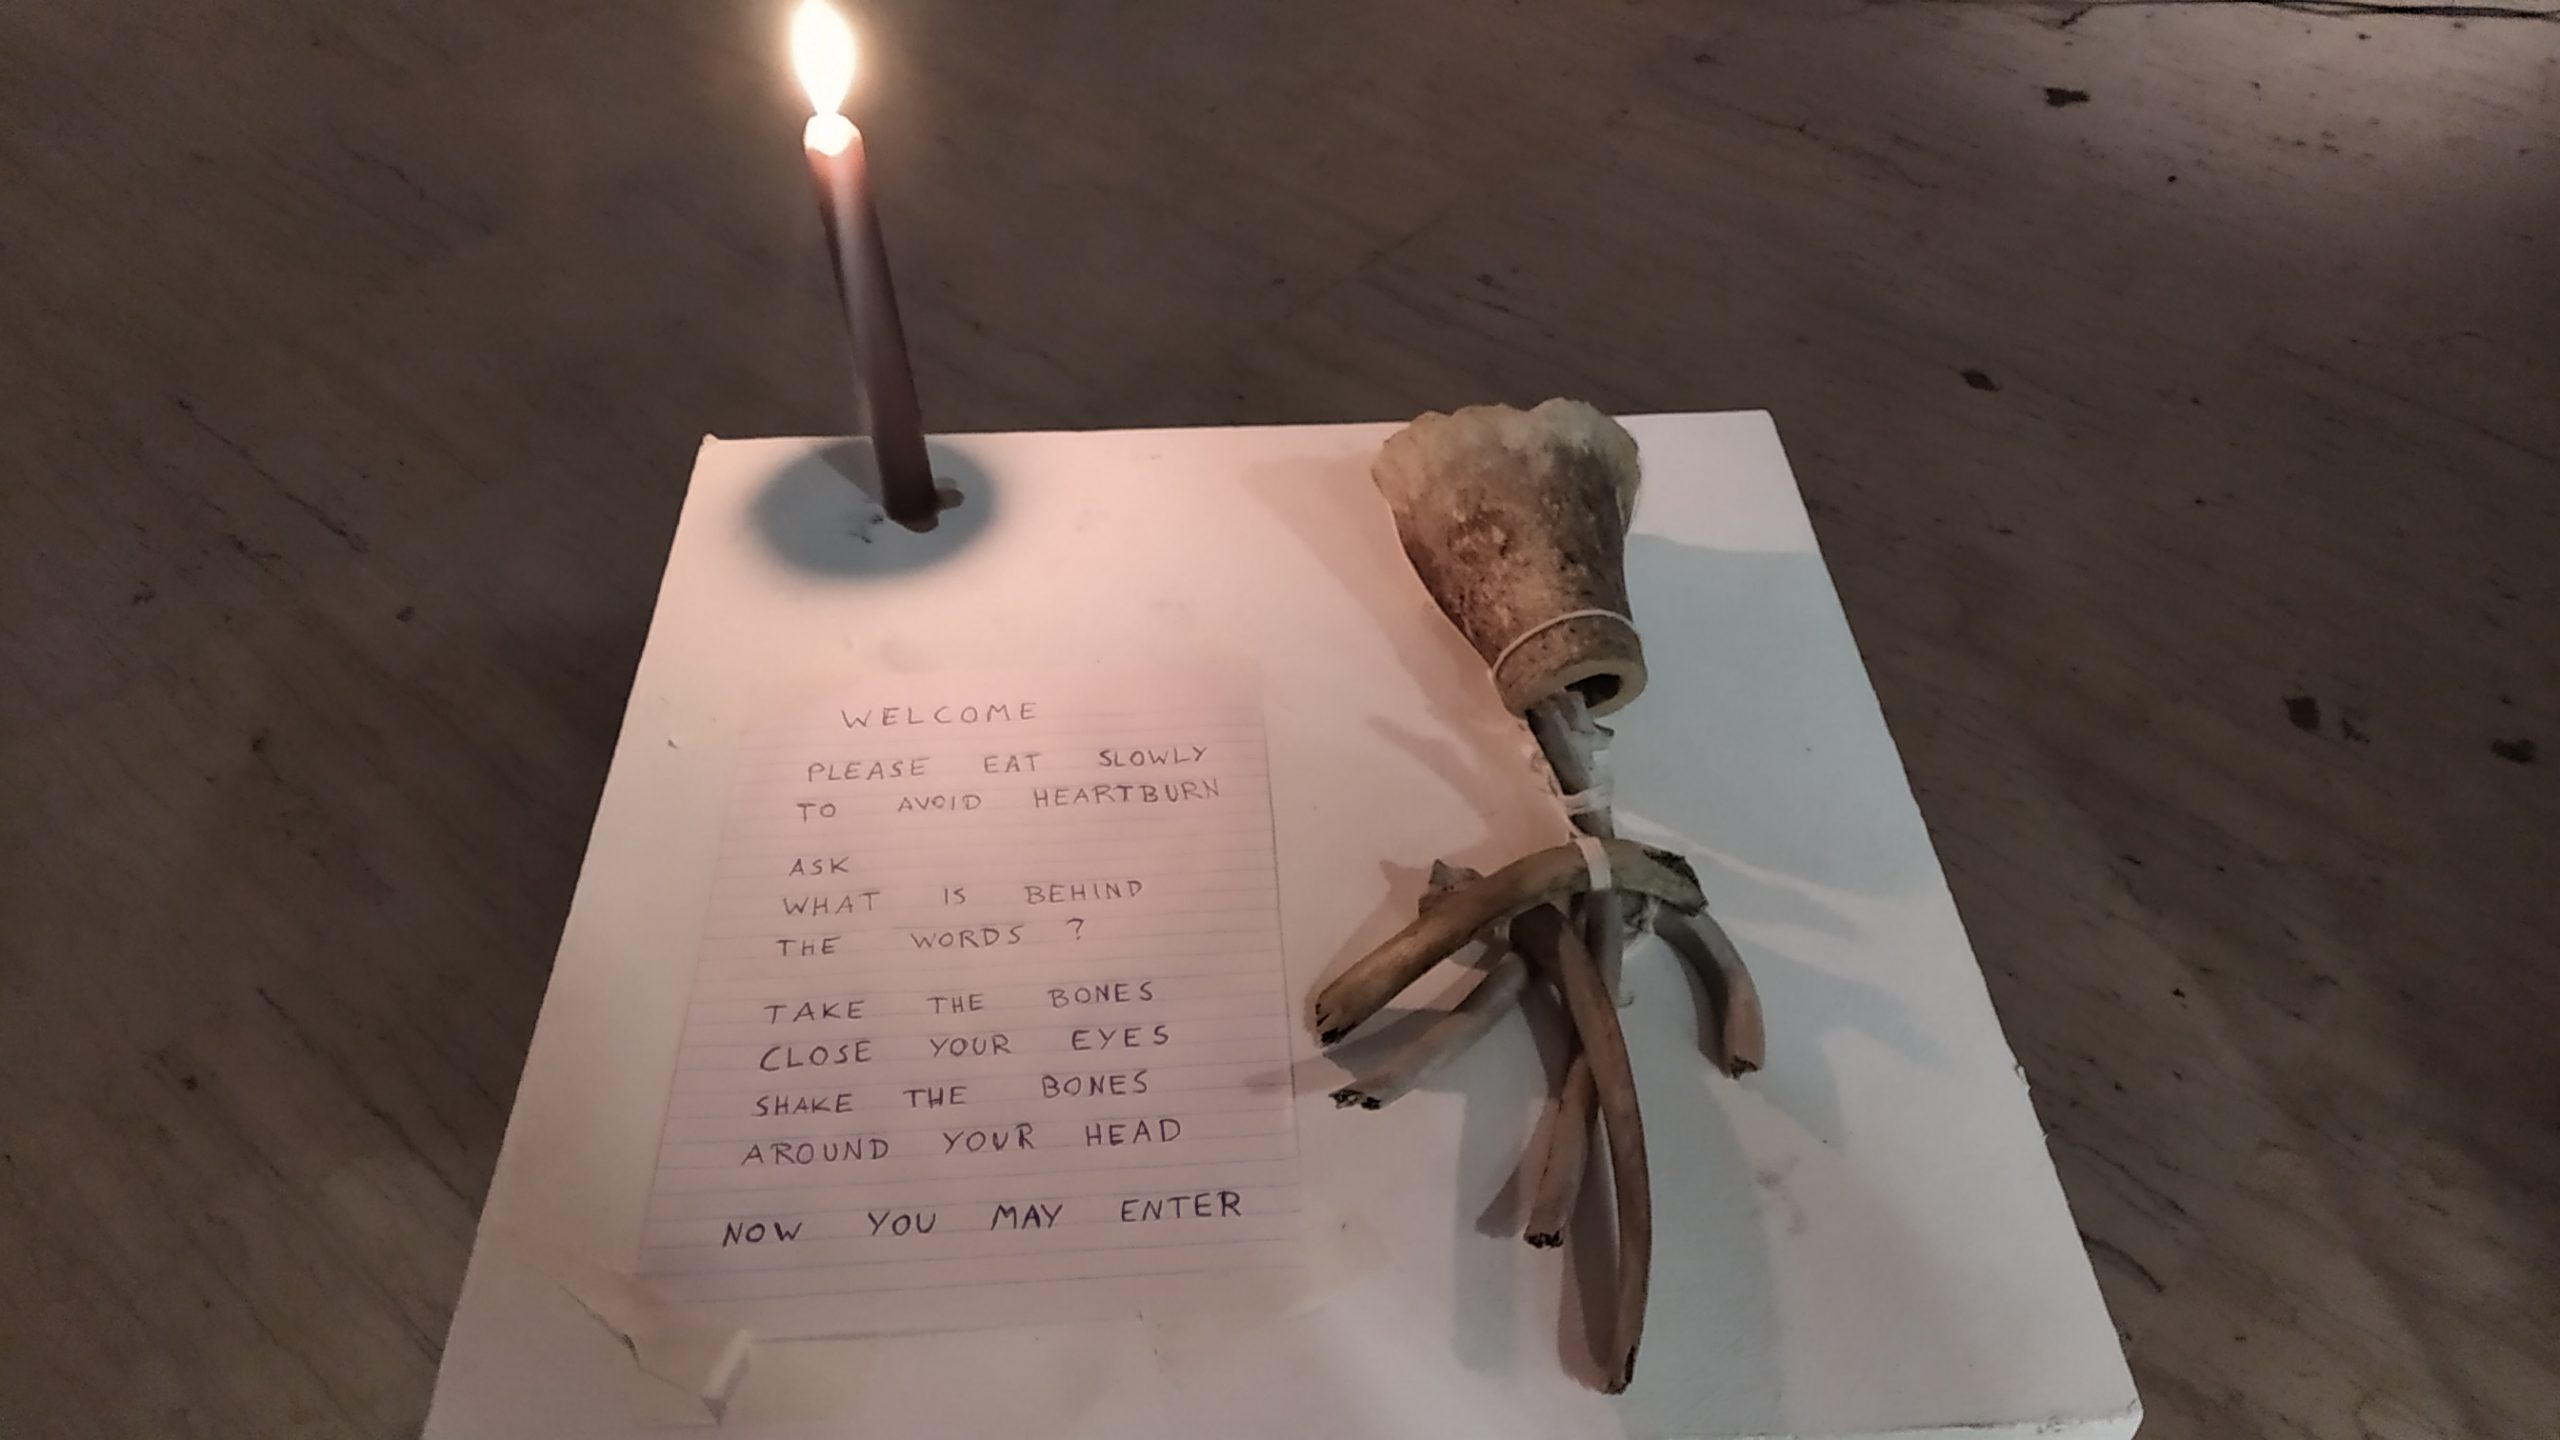 WELCOME
PLEASE EAT SLOWLY
TO AVOID HEARTBURN
ASK
WHAT IS BEHIND
THE WORDS ?
TAKE THE BONES
CLOSE YOUR EYES
SHAKE THE BONES
AROUND YOUR HEAD
NOW YOU MAY ENTER